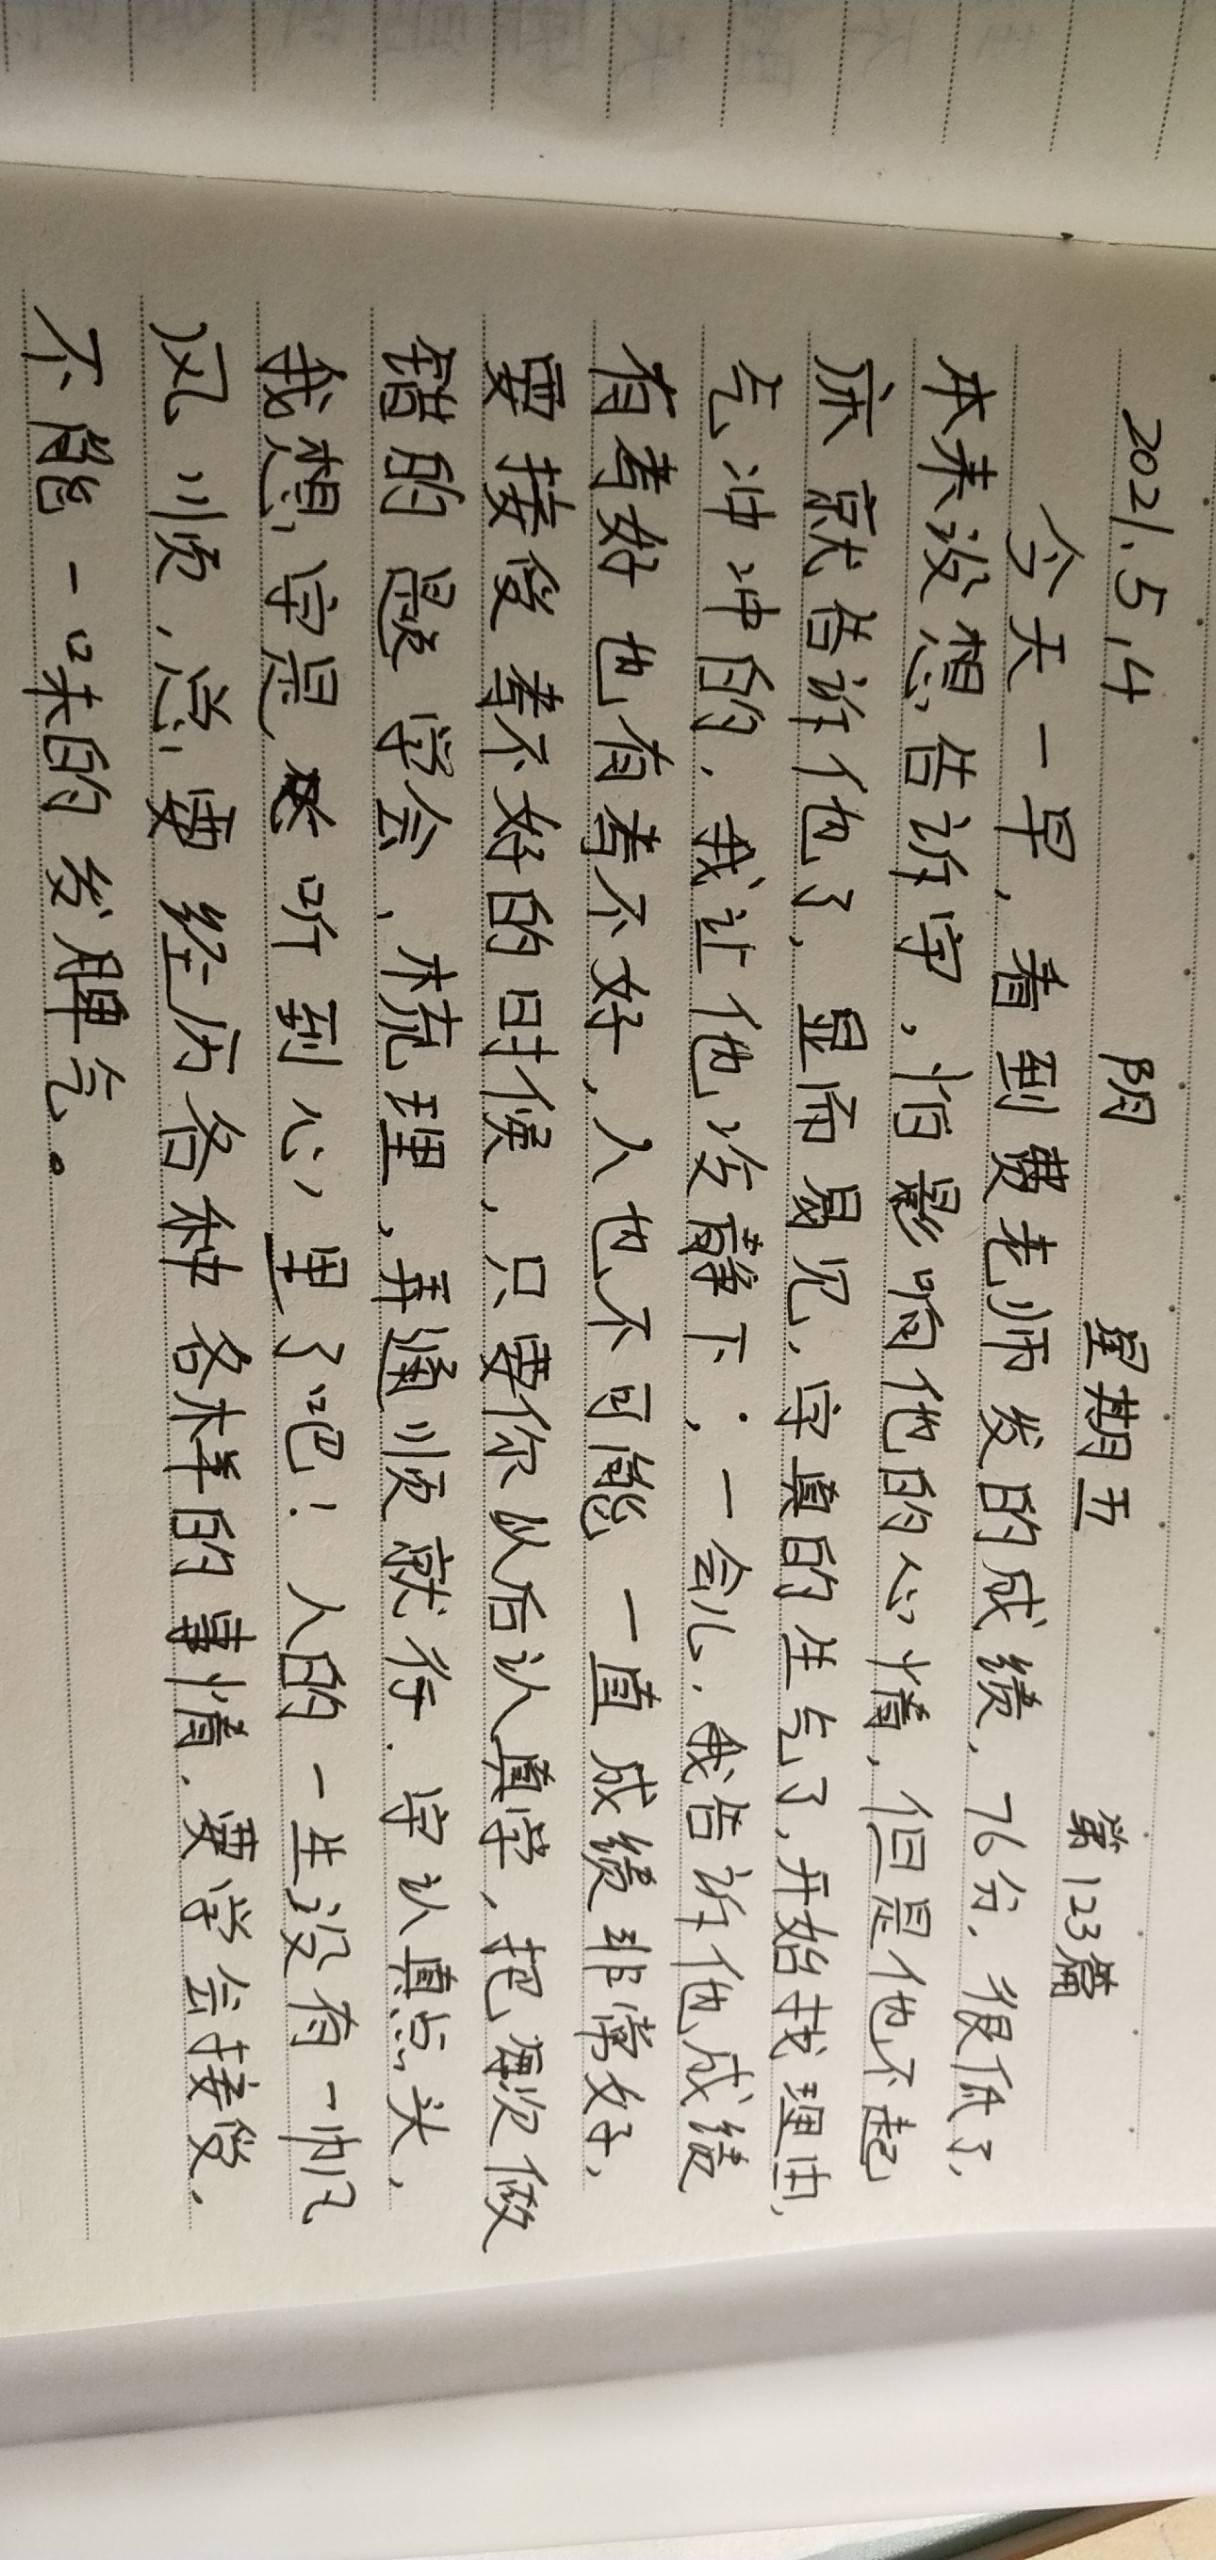 2021.5.4 阴 星期五 第123篇
今天一早，看到费老师发的成绩，76分，很低了，
本来没想告诉宇，怕影响他的心情，但是他不起
床就告诉他了，显而易见，宇真的生气了，开始找理由，
气冲冲的，我让他冷静下，一会儿，我告诉他成绩
有考好也有考不好，人也不可能一直成绩非常好，
要接受考不好的时候，只要你从后认真学，把每次做
错的题学会，梳理，弄通顺就行。宇认真点头，
我想，宇是听到心里了吧！人的一生没有一帆
风顺，总要经历各种各样的事情，要学会接受，
不能一味的发脾气。